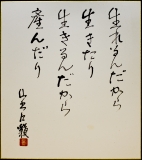 生れるんだから
生きたり
生きるんだから
産んだり